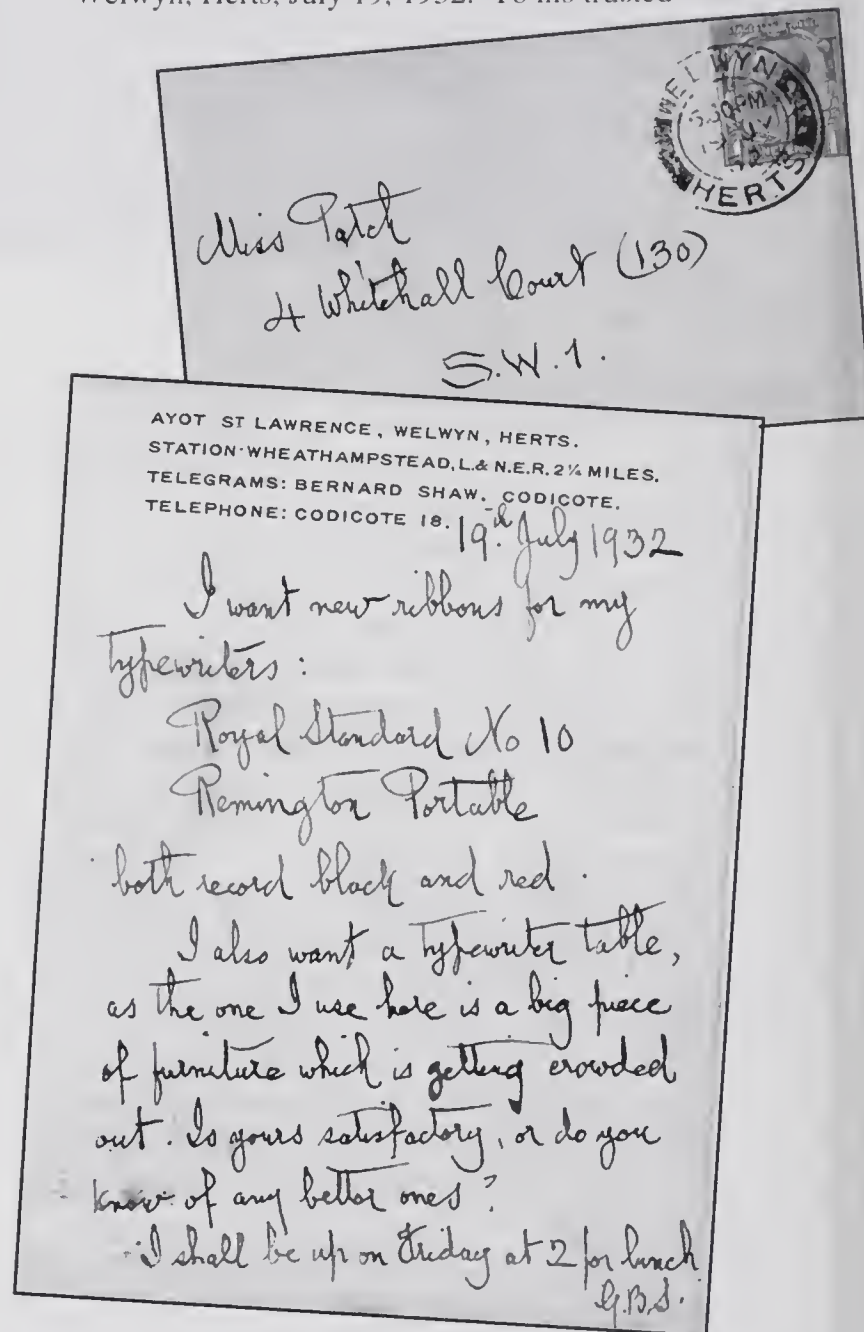 Welwyn, Herts, July 19, 1932. To his trusted
WELWYN
HERTS
Miss Patch
4 Whitehall Court (130)
S.W.1.
AYOT ST LAWRENCE, WELWYN, HERTS.
STATION-WHEATHAMPSTEAD, L.& N.E.R. 2¼ MILES.
TELEGRAMS: BERNARD SHAW. CODICOTE.
TELEPHONE: CODICOTE 18.
19th July 1932
I want new ribbons for my
typewriters:
Royal Standard No 10
Remington Portable
both record black and red.
I also want a typewriter table,
as the one I use here is a big piece
of furniture which is getting crowded
out. Is yours satisfactory, or do you
know of any better ones?
I shall be up on Friday at 2 for lunch
G.B.S.